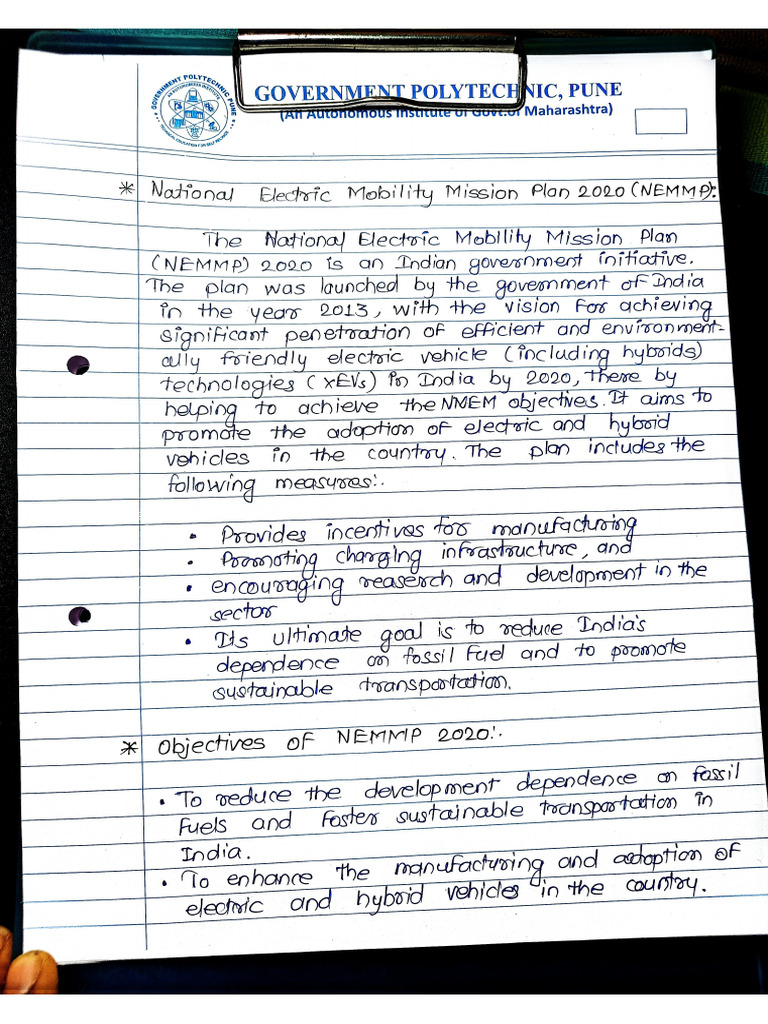 GOVERNMENT POLYTECHNIC, PUNE
(An Autonomous Institute of Govt.of Maharashtra)
GOVERNMENT POLYTECHNIC PUNE
* National Electric Mobility Mission Plan 2020 (NEMMP):
The National Electric Mobility Mission Plan
(NEMMP) 2020 is an Indian government initiative.
The plan was launched by the government of India
in the year 2013, with the vision for achieving
significant penetration of efficient and environment-
ally friendly electric vehicle (including hybrids)
technologies (xEVs) in India by 2020, there by
helping to achieve the NNEM objectives. It aims to
promote the adoption of electric and hybrid
vehicles in the country. The plan includes the
following measures:.
• Provides incentives for manufacturing
• Promoting charging infrastructure, and
• encouraging reaserch and development in the
sector
• Its ultimate goal is to reduce India's
dependence on fossil fuel and to promote
sustainable transportation.
* Objectives of NEMMP 2020:.
• To reduce the development dependence on fossil
fuels and foster sustainable transportation in
India.
• To enhance the manufacturing and adoption of
electric and hybrid vehicles in the country.